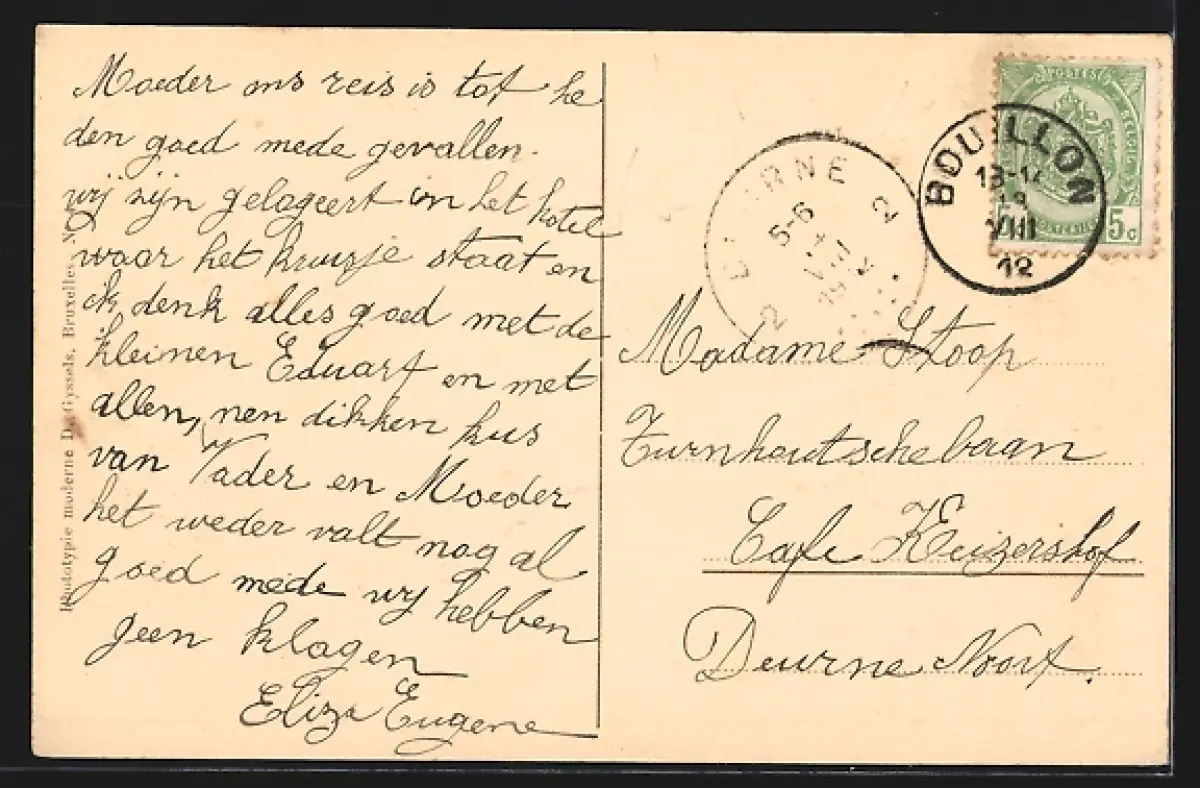 Moeder ons reis is tot he
den goed mede gevallen.
wij zijn gelogeert in het hotel
waar het kruisje staat en
ik denk alles goed met de
kleinen Eduart en met
allen, nen dikken kus
van Vader en Moeder
het weder valt nog al
goed mede wy hebben
geen klagen
Eliza Eugene
Phototypie moderne D. Gyssels, Bruxelles
POSTES
5c
BOUILLON
VIII
12
DEURNE 2
5-6
VIII
2
Madame Stoop
Turnhoutschebaan
Cafe Keizershof
Deurne Noort.